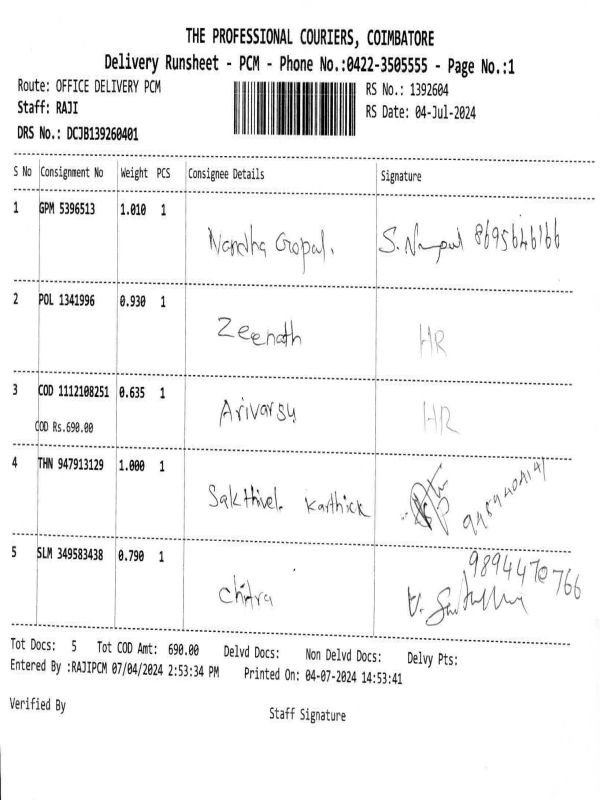 THE PROFESSIONAL COURIERS, COIMBATORE
Delivery Runsheet - PCM - Phone No.:0422-3505555 - Page No.:1
Route: OFFICE DELIVERY PCM RS No.: 1392604
Staff: RAJI RS Date: 04-Jul-2024
DRS No.: DCJB139260401
S No Consignment No Weight PCS Consignee Details Signature
1 GPM 5396513 1.010 1
Nandha Gopal. S. 8695646166
2 POL 1341996 0.930 1
Zeenath HR
3 COD 1112108251 0.635 1
Arivarsu HR
COD Rs.690.00
4 THN 947913129 1.000 1
Sakthivel Karthick
5 SLM 349583438 0.790 1 9894470766
Chitra
Tot Docs: 5 Tot COD Amt: 690.00 Delvd Docs: Non Delvd Docs: Delvy Pts:
Entered By :RAJIPCM 07/04/2024 2:53:34 PM Printed On: 04-07-2024 14:53:41
Verified By Staff Signature